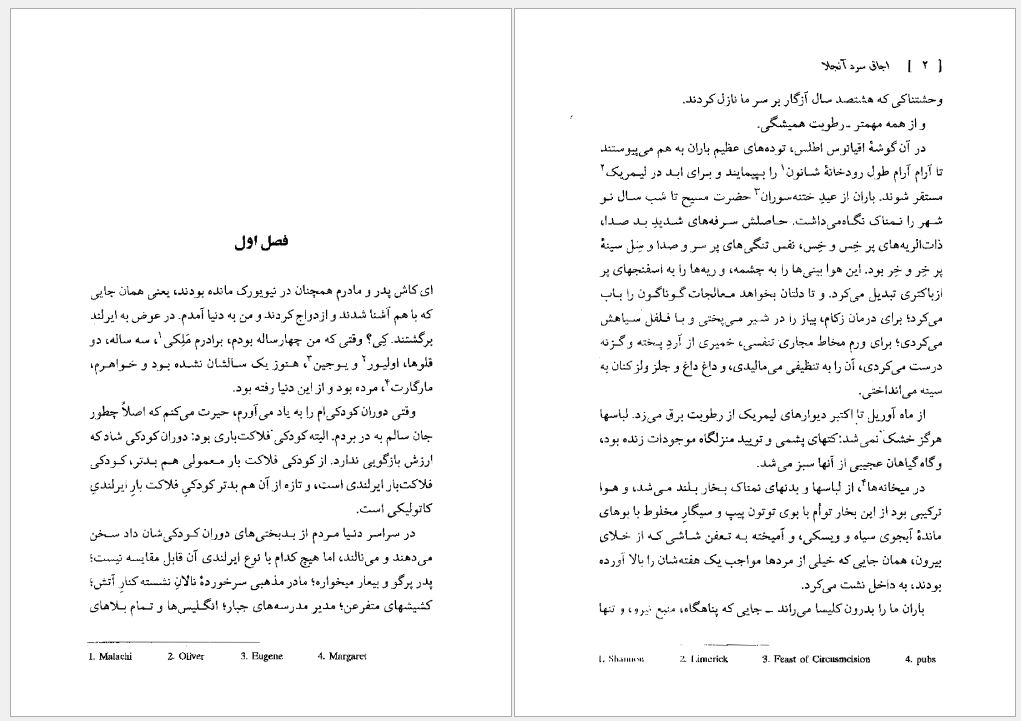 فصل اول
ای کاش پدر و مادرم همچنان در نیویورک مانده بودند، یعنی همان جایی
که با هم آشنا شدند و ازدواج کردند و من به دنیا آمدم. در عوض به ایرلند
برگشتند. کِی؟ وقتی که من چهارساله بودم، برادرم مَلِکی۱، سه ساله، دو
قلوها، اولیور۲ و یوجین۳، هنوز یک سالشان نشده بود و خواهرم،
مارگارت۴، مرده بود و از این دنیا رفته بود.
وقتی دوران کودکی‌ام را به یاد می‌آورم، حیرت می‌کنم که اصلاً چطور
جان سالم به در بردم. البته کودکی فلاکت‌باری بود: دوران کودکی شاد که
ارزش بازگویی ندارد. از کودکی فلاکت بار معمولی هم بدتر، کودکی
فلاکت‌بار ایرلندی است، و تازه از آن هم بدتر کودکیِ فلاکت بارِ ایرلندیِ
کاتولیکی است.
در سراسر دنیا مردم از بدبختی‌های دوران کودکی‌شان داد سخن
می‌دهند و می‌نالند، اما هیچ کدام با نوع ایرلندی آن قابل مقایسه نیست؛
پدر پرگو و بیعار میخواره؛ مادر مذهبی سرخوردهٔ نالانِ نشسته کنارِ آتش؛
کشیشهای متفرعن؛ مدیر مدرسه‌های جبار؛ انگلیس‌ها و تمام بلاهای
1. Malachi 2. Oliver 3. Eugene 4. Margaret
[ ۲ ] اجاق سرد آنجلا
وحشتناکی که هشتصد سال آزگار بر سر ما نازل کردند.
و از همه مهمتر ـ رطوبت همیشگی.
در آن گوشهٔ اقیانوس اطلس، توده‌های عظیم باران به هم می‌پیوستند
تا آرام آرام طول رودخانهٔ شانون۱ را بپیمایند و برای ابد در لیمریک۲
مستقر شوند. باران از عیدِ ختنه‌سوران۳ حضرت مسیح تا شب سال نو
شهر را نمناک نگاه می‌داشت. حاصلش سرفه‌های شدیدِ بد صدا،
ذات‌الریه‌های پر خِس و خِس، نفس تنگی‌های پر سر و صدا و سِل سینهٔ
پر خِر و خِر بود. این هوا بینی‌ها را به چشمه، و ریه‌ها را به اسفنجهای پر
ازباکتری تبدیل می‌کرد. و تا دلتان بخواهد معالجات گوناگون را باب
می‌کرد؛ برای درمان زکام، پیاز را در شیر می‌پختی و با فلفل سیاهش
می‌کردی؛ برای ورم مخاط مجاری تنفسی، خمیری از آردِ پخته و گزنه
درست می‌کردی، آن را به تنظیفی می‌مالیدی، و داغ داغ و جلز ولز کنان به
سینه می‌انداختی.
از ماه آوریل تا اکتبر دیوارهای لیمریک از رطوبت برق می‌زد. لباسها
هرگز خشک نمی‌شد: کتهای پشمی و تویید منزلگاه موجودات زنده بود،
وگاه گیاهان عجیبی از آنها سبز می‌شد.
در میخانه‌ها۴، از لباسها و بدنهای نمناک بخار بلند می‌شد، و هوا
ترکیبی بود از این بخار توأم با بوی توتون پیپ و سیگارِ مخلوط با بوهای
ماندهٔ آبجوی سیاه و ویسکی، و آمیخته به تعفن شاشی که از خلای
بیرون، همان جایی که خیلی از مردها مواجب یک هفته‌شان را بالا آورده
بودند، به داخل نشت می‌کرد.
باران ما را بدرون کلیسا می‌راند ـ جایی که پناهگاه، منبع نیرو، و تنها
1. Shannon 2. Limerick 3. Feast of Circusmcision 4. pubs